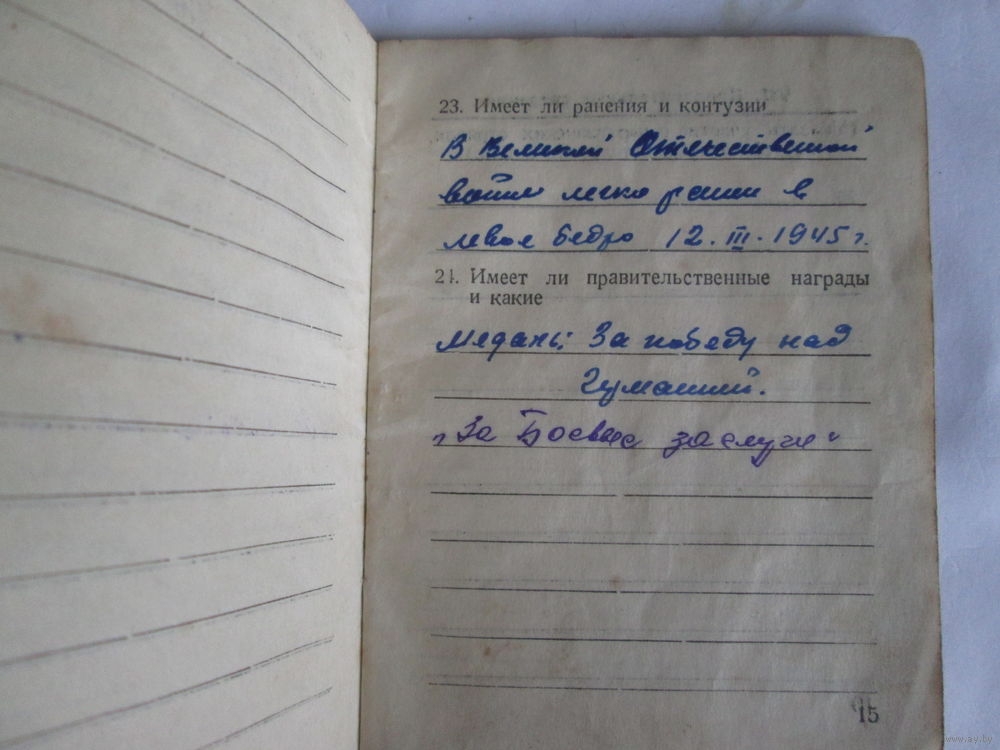 23. Имеет ли ранения и контузии
В Великой Отечественной
войне легко ранен в
левое бедро 12.III.1945 г.
24. Имеет ли правительственные награды
и какие
Медаль: За победу над
Германией.
"За Боевые заслуги"
15
www.ay.by